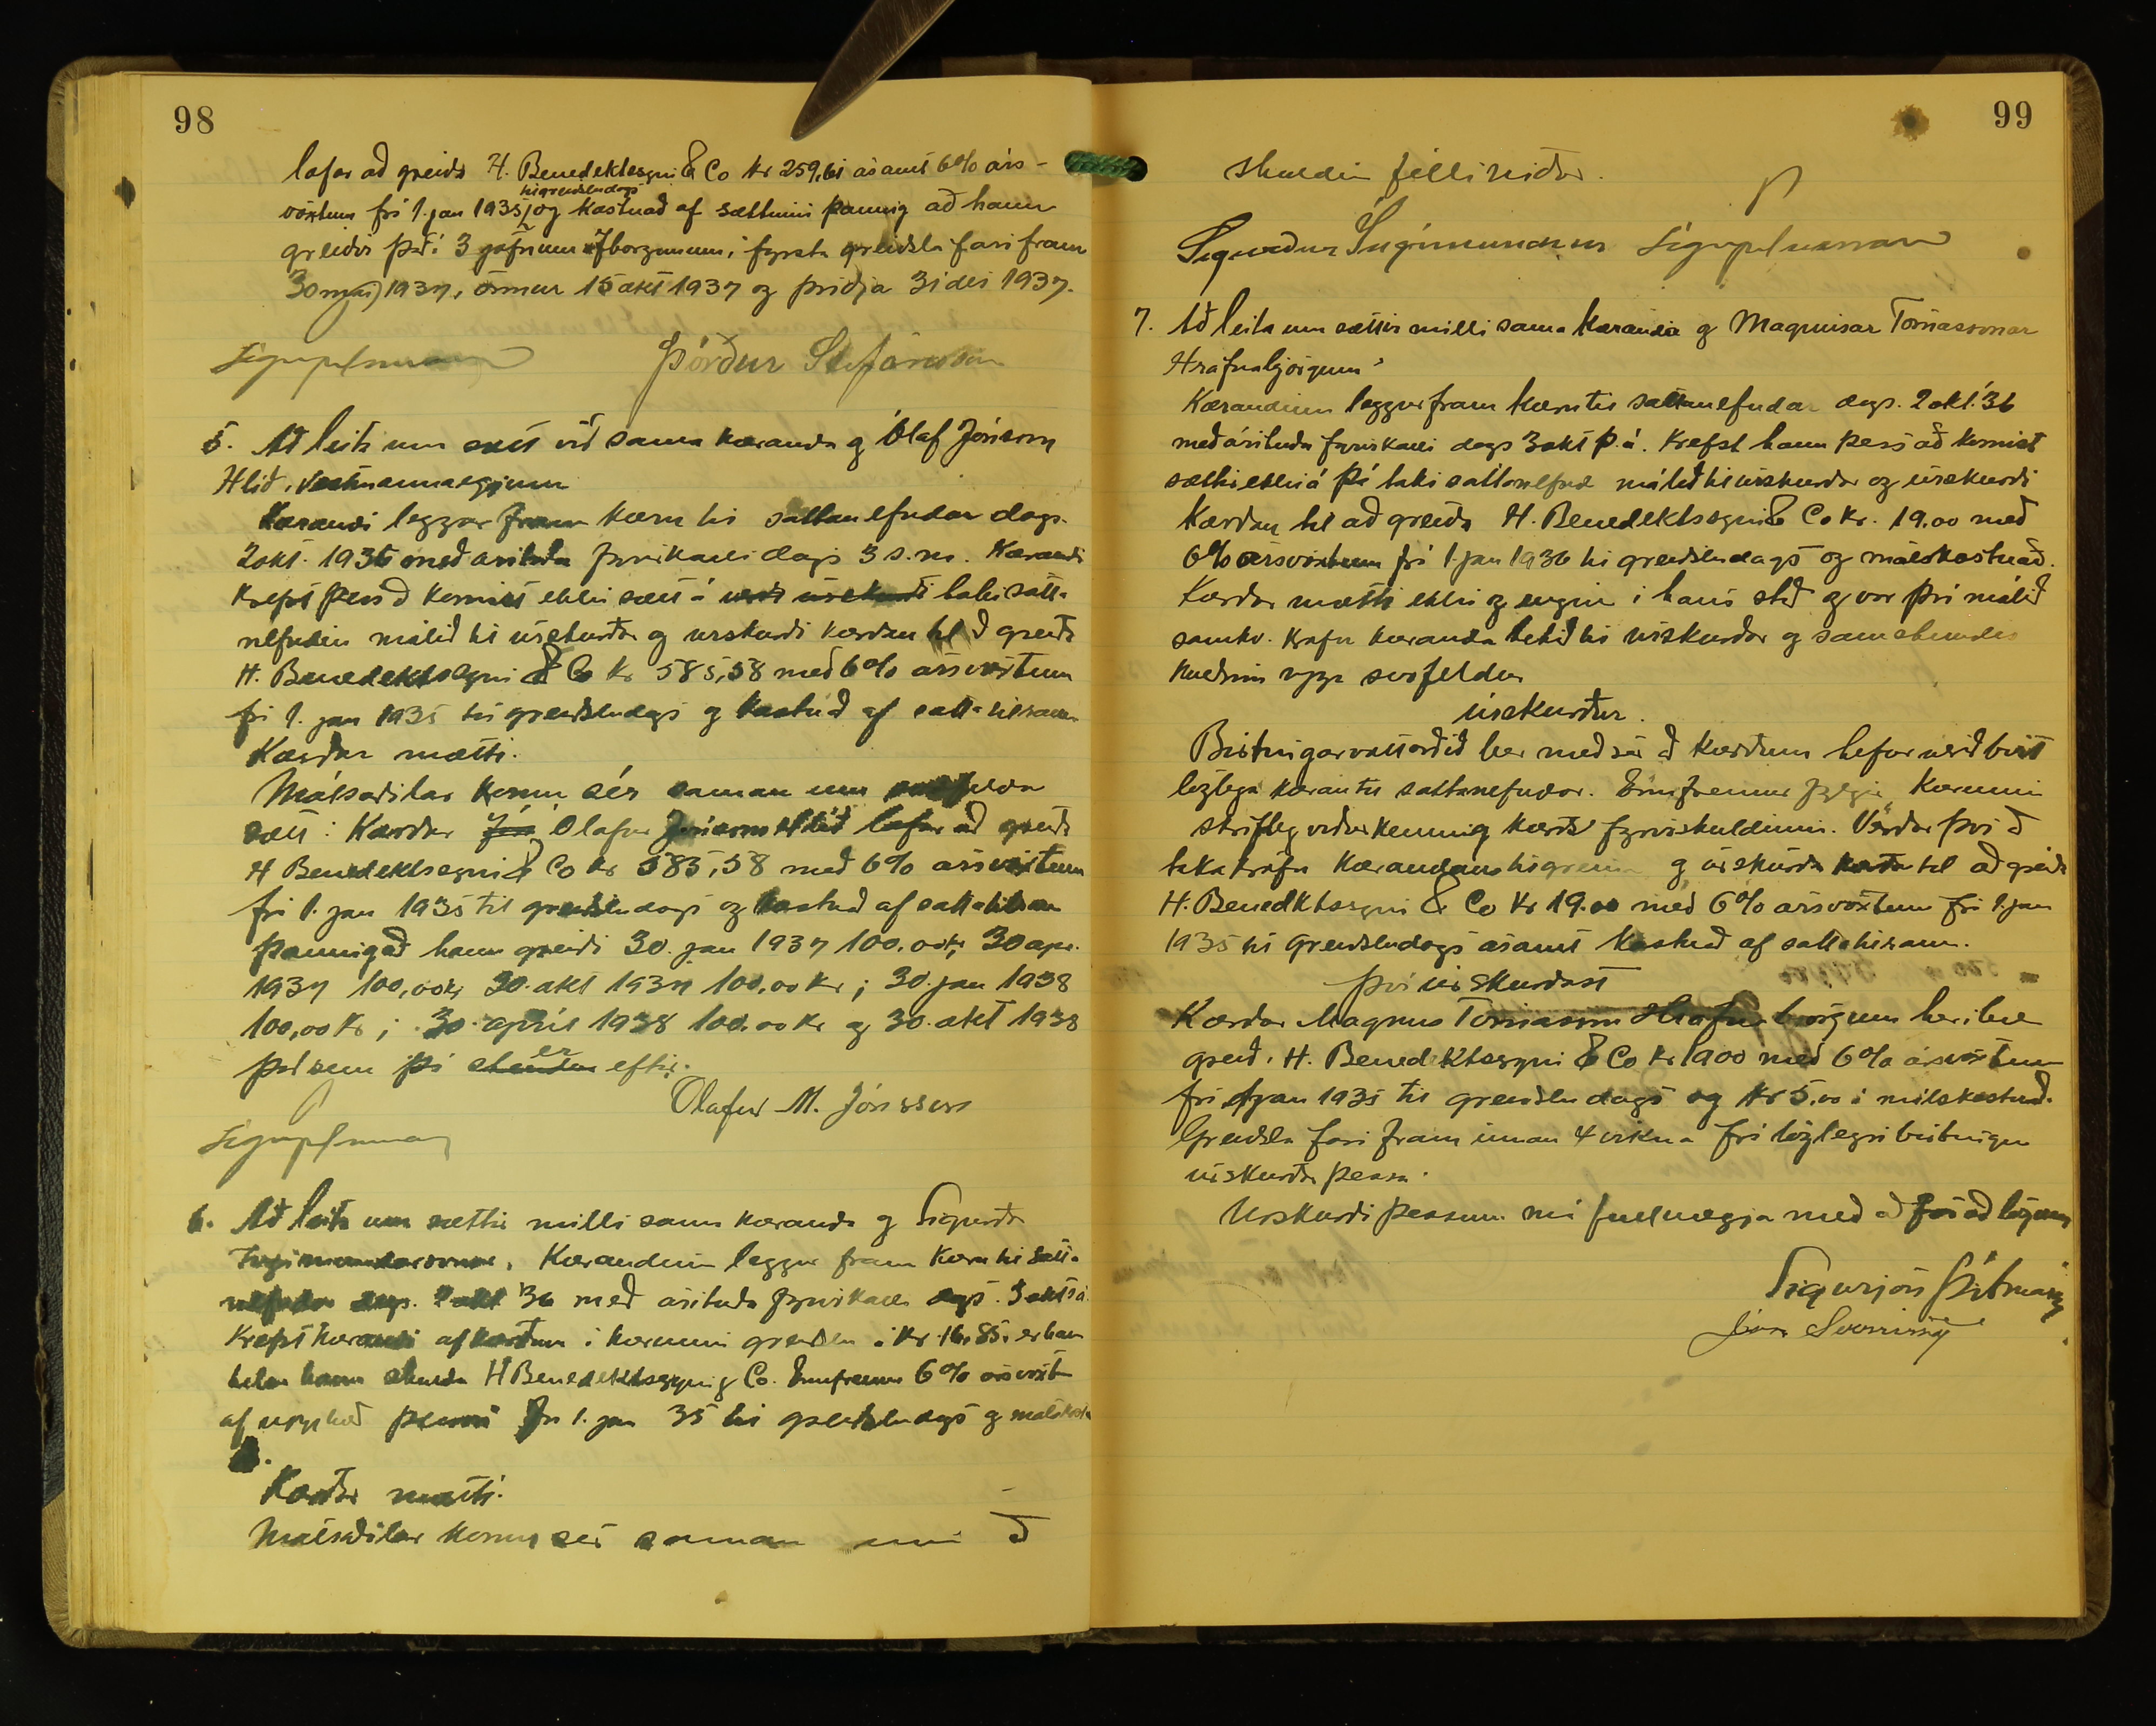 98
lofar að greiða H. Benediktssyni & Co kr 259,61 ásamt 6% árs-
til greiðsludags
vöxtum frá 1. jan 1935, og kostnað af sættinni þannig að hann
greiðir það í 3 jöfnum afborgunum, fyrsta greiðsla fari fram
30 maí 1937, önnur 15 okt 1937 og þriðja 31 des 1937.
Þórður Stefánsson
5. Að leita um sátt við sama kæranda og Ólaf Jónsson
Hlíð, Vestmannaeyjum
Kærandi leggur fram kæru til sáttanefndar dags.
2 okt. 1936 með áritaðu fyrirkalli dags 3 s.m. Kærandi
krefst þess að komist ekki sátt á úrskurði taki sátta-
nefndin málið til úrskurðar og úrskurði kærðan til að greiða
H. Benediktssyni & Co kr 585,58 með 6% ársvöxtum
frá 1. jan 1935 til greiðsludags og kostnað af sáttatilraun
Kærður mætti.
Málsaðilar komu sér saman um svofelda
sátt: Kærður Jón Ólafur Jónsson Hlíð lofar að greiða
H Benediktssyni & Co kr 585,58 með 6% ársvöxtum
frá 1. jan 1935 til greiðsludags og kostnað af sáttatilraun
þannig að hann greiði 30. jan 1937 100.00 kr, 30 apr.
1937 100,00 kr, 30. okt 1937 100,00 kr; 30. jan 1938
100,00 kr; 30. apríl 1938 100.00 kr og 30. okt 1938
það sem þá er eftir.
Ólafur M. Jónsson
6. Að leita um sættir milli sama kæranda og Sigurðar
Ingimundarsonar. Kærandinn leggur fram kæru til sátta-
nefndar dags. 2 okt '36 með áritaðu fyrirkalli dags. 3 okt s.á.
Krefst kærandi af kærðum í kærunni greiðslu á kr. 16.85, er hann
telur hann skulda H Benediktssyni & Co. Ennfremur 6% ársvöxtu
af upphæð þessari frá 1. jan 35 til greiðsludags og málskostn
Kærður mætti.
Málsaðilar komu sér saman um að
99
skuldin félli niður.
Sigurður Ingimundarson
7. Að leita um sættir milli sama kæranda og Magnúsar Tómassonar
Hrafnabjörgum.
Kærandinn leggur fram kæru til sáttanefndar dags. 2 okt. '36
með áritaðu fyrirkalli dags 3 okt þ.á. Krefst hann þess að komist
sætti ekki á þá taki sáttanefnd málið til úrskurðar og úrskurði
kærðan til að greiða H. Benediktssyni & Co kr. 19.00 með
6% ársvöxtum frá 1. jan 1936 til greiðsludags og málskostnað.
Kærður mætti ekki og enginn í hans stað og var því málið
samkv. kröfu kæranda tekið til úrskurðar og samstundis
kveðinn upp svofeldur
úrskurður.
Birtingarvottorðið ber með sér að kærðum hefur verið birt
löglega kæran til sáttanefndar. Ennfremur fylgir kærunni
skrifleg viðurkenning kærða fyrir skuldinni. Verður því að
taka kröfu kærandans til greina og úrskurða kærða til að greiða
H. Benediktssyni & Co kr 19.00 með 6% ársvöxtum frá 1. jan
1935 til greiðsludags ásamt kostnað af sáttatilraun.
Því úrskurðast
Kærður Magnús Tómasson Hrafnabjörgum ber að
greiða H. Benediktssyni & Co kr 1900 með 6% ársvöxtum
frá 1 jan 1935 til greiðsludags og kr 5,00 í málskostnað.
Greiðsla fari fram innan 4 vikna frá löglegri birtingu
úrskurðar þessa.
Úrskurði þessum má fullnægja með aðför að lögum
Sigurjón
Jón Sveinsson